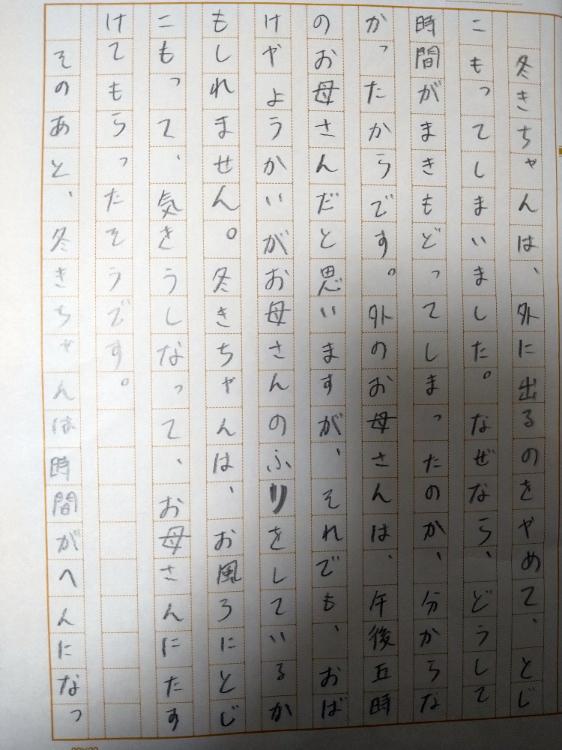 冬きちゃんは、外に出るのをやめて、とじ
こもってしまいました。なぜなら、どうして
時間がまきもどってしまったのか、分からな
かったからです。外のお母さんは、午後五時
のお母さんだと思いますが、それでも、おば
けやようかいがお母さんのふりをしているか
もしれません。冬きちゃんは、お風ろにとじ
こもって、気きうしなって、お母さんにたす
けてもらったそうです。
そのあと、冬きちゃんは時間がへんになっ